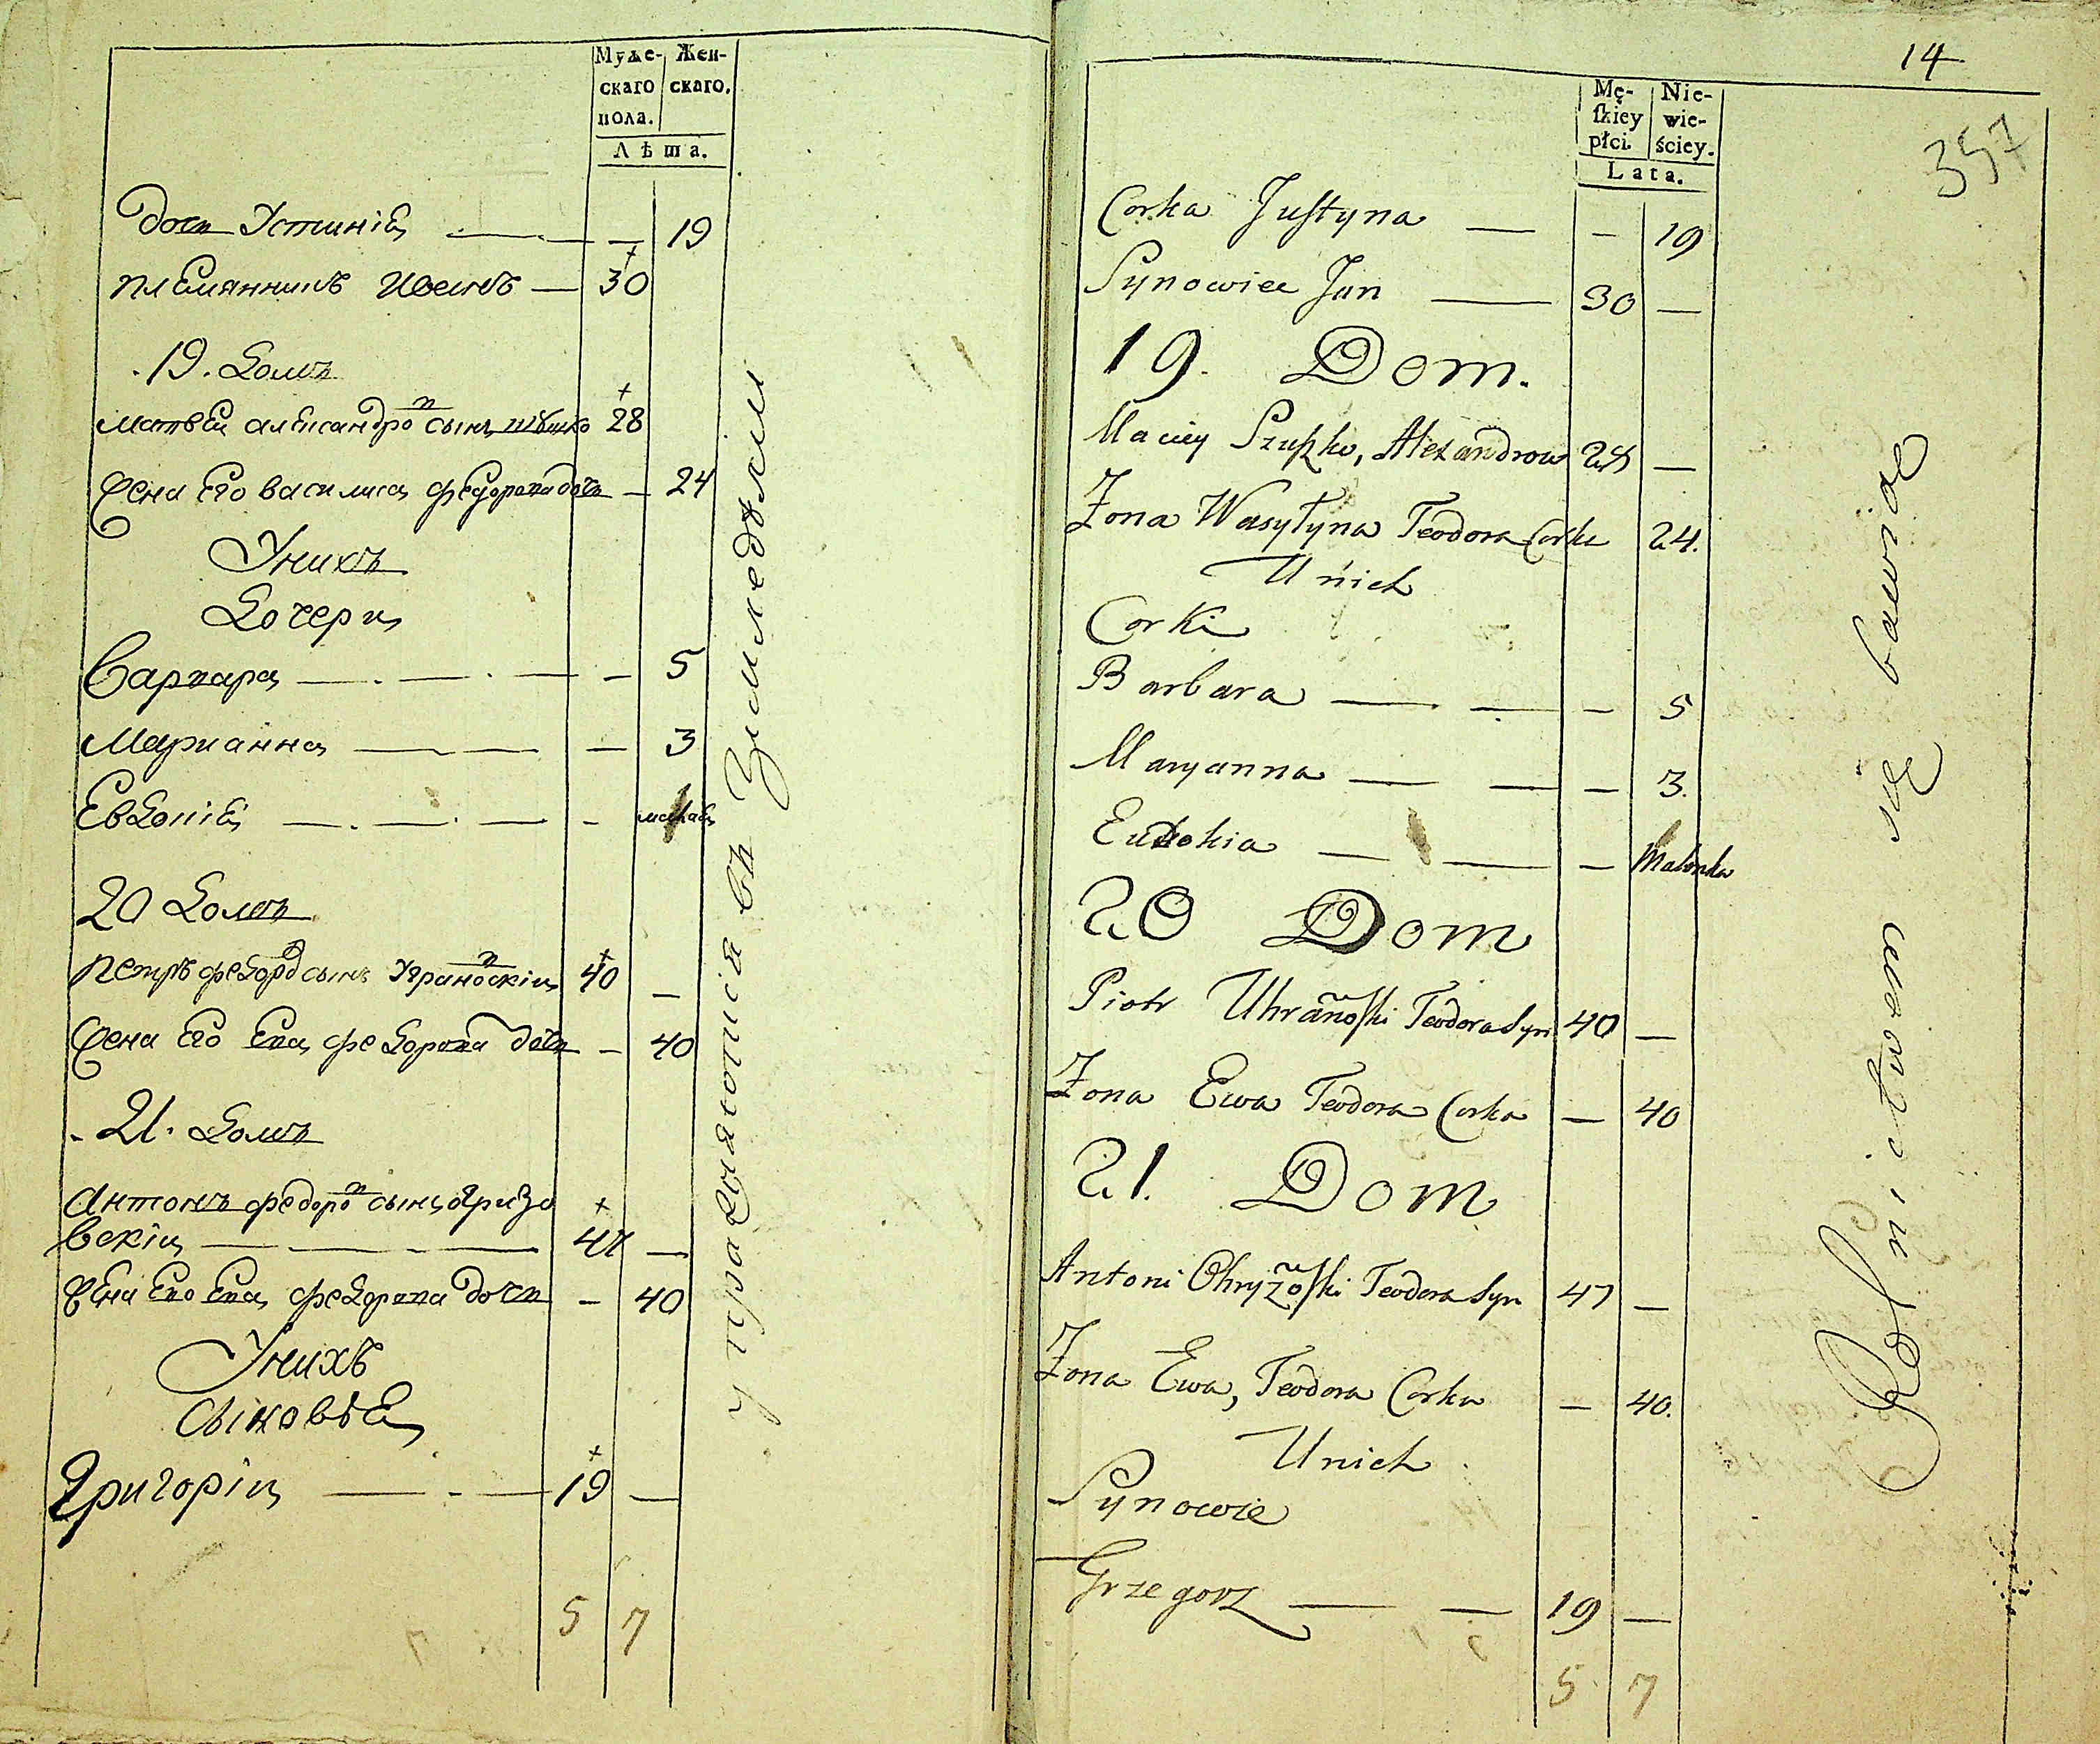 Муже- Жен-
скаго скаго.
пола.
Лѣта.
дочь Устинія — 19
племянникъ Иванъ — 30
19. Домъ
матвей александров сынъ шѣшко 28
жена его василиса федорова дочь — 24
У них
Дочери
Варвара — 5
Марианна — 3
Евдокия —
20 Домъ
петръ федоров сынъ Угриновскій 40 —
Жена его Ева федорова дочь — 40
21. Домъ
Антонъ федоров сынъ огризо
вский — 47 —
Жена его Ева федорова дочь — 40
У нихъ
Сыновѣе
Григорій — 19 —
5 7
упражняютися въ Зимледѣлии
14
357
Mę- Nie-
ſkiey wie-
płci. ściey.
Lata.
Corka Juſtyna — — 19
Synowiec Jan — 30 —
19. Dom.
Maciey Szuszko, Alexandrow 28 —
Żona Wasylyna Teodora Corka 24.
U nich
Corki
Barbara — — 5
Maryanna — — 3.
Eudokia — — Malenka
20 Dom
Piotr Uhranoſki Teodora Syn 40 —
Żona Ewa Teodora Corka — 40
21. Dom
Antoni Ohryzoſki Teodora Syn 47 —
Żona Ewa, Teodora Corka — 40.
U nich
Synowie
Grzegorz — 19 —
5 7
Rolnictwem się bawią